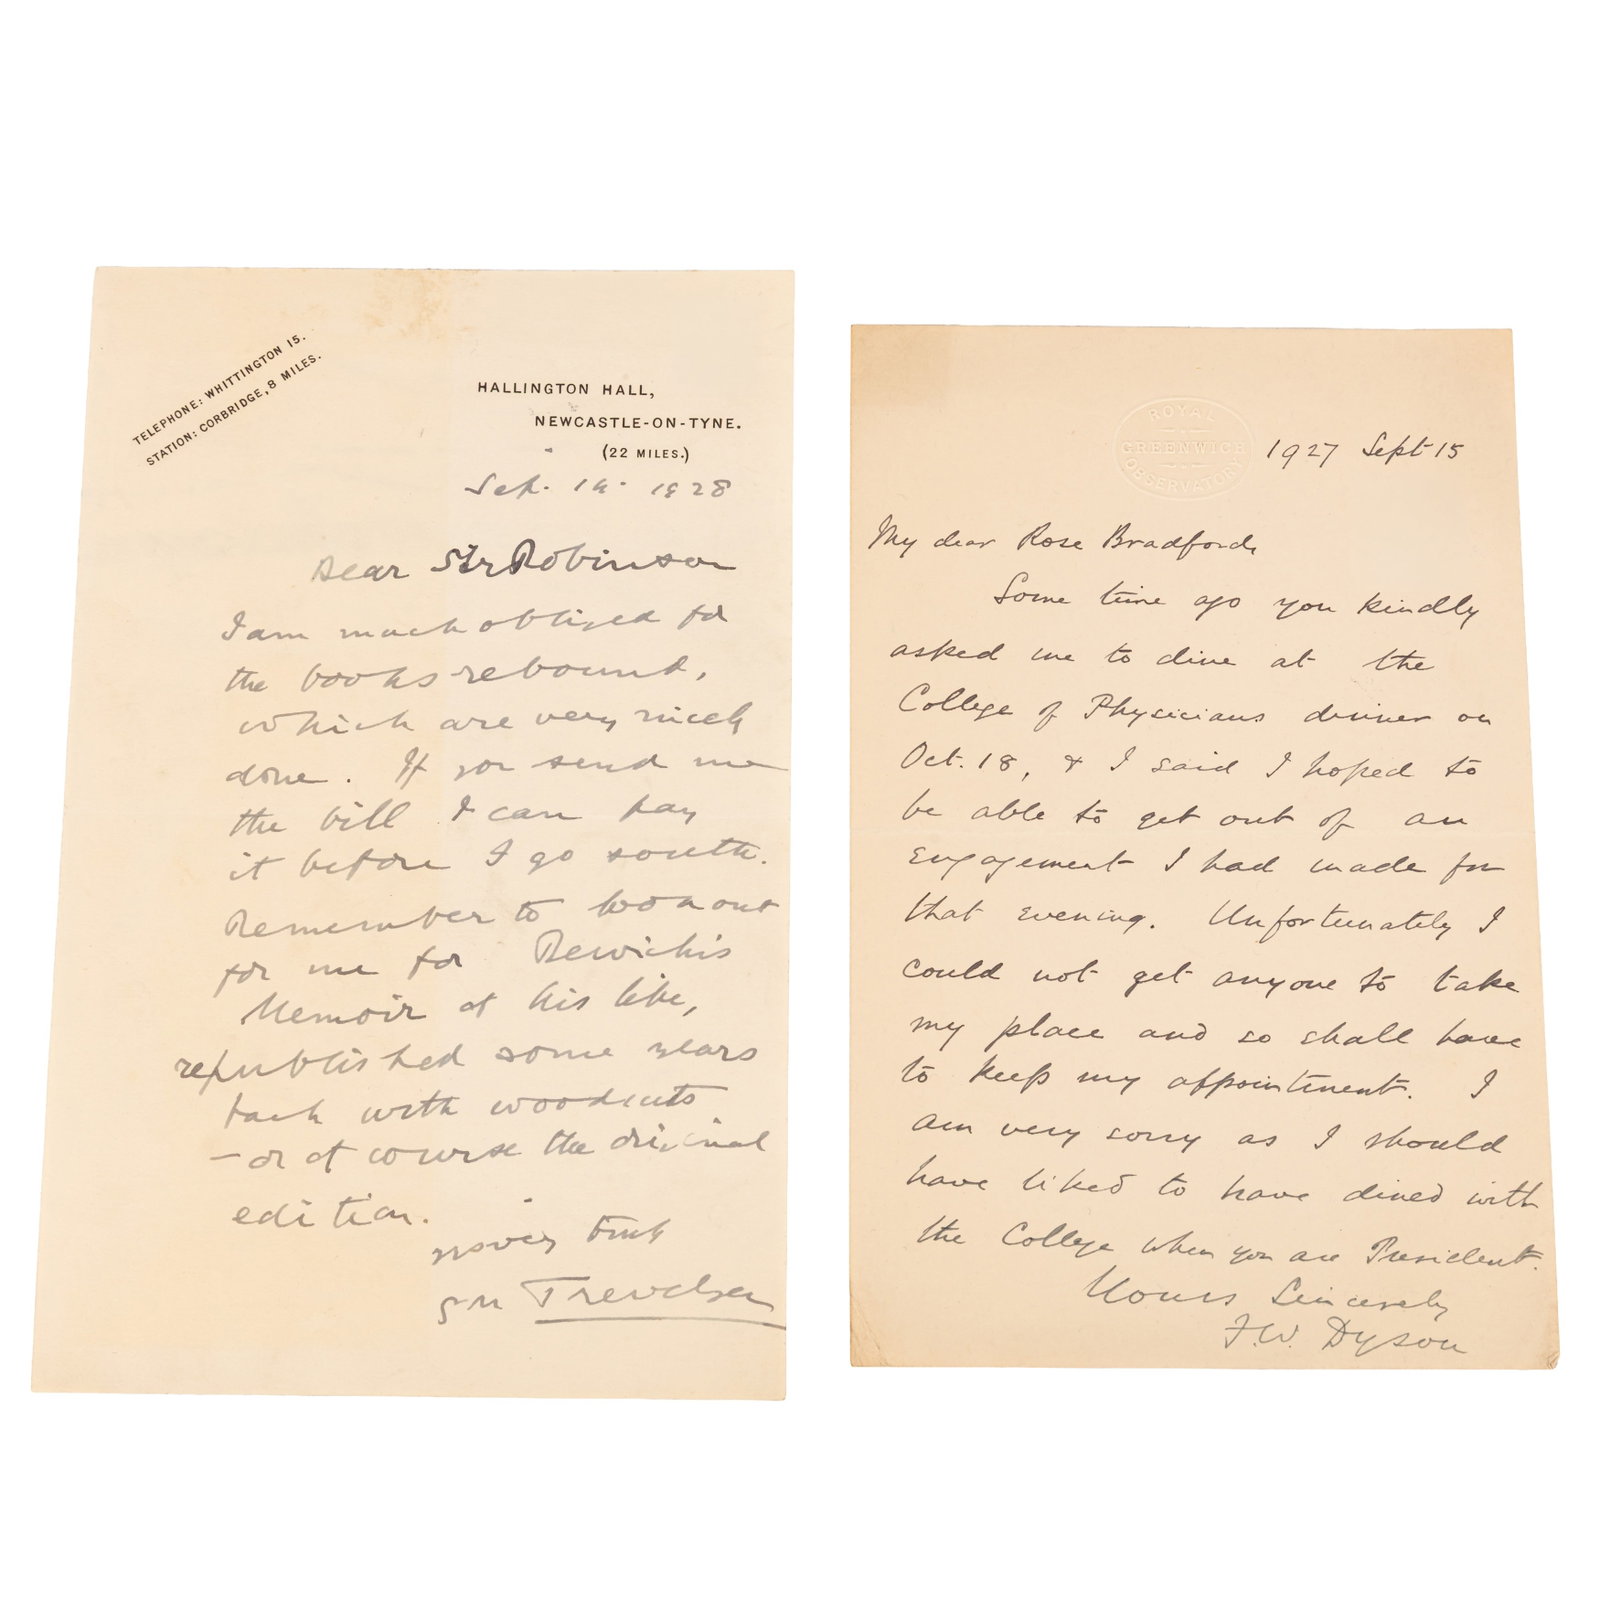 TELEPHONE: WHITTINGTON 15.
STATION: CORBRIDGE, 8 MILES.
HALLINGTON HALL,
NEWCASTLE-ON-TYNE.
(22 MILES.)
Sep. 1928
Dear Robinson
I am much obliged for
the books rebound,
which are very nicely
done. If you send me
the bill I can pay
it before I go south.
Remember to look out
for me for Bewick's
Memoir of his life,
republished some years
back with woodcuts
– or of course the original
edition.
Yours truly
G M Trevelyan
ROYAL
GREENWICH
OBSERVATORY
1927 Sept 15
My dear Rose Bradford,
Some time ago you kindly
asked me to dine at the
College of Physicians dinner on
Oct. 18, & I said I hoped to
be able to get out of an
engagement I had made for
that evening. Unfortunately I
could not get anyone to take
my place and so shall have
to keep my appointment. I
am very sorry as I should
have liked to have dined with
the College when you are President.
Yours Sincerely
F.W. Dyson